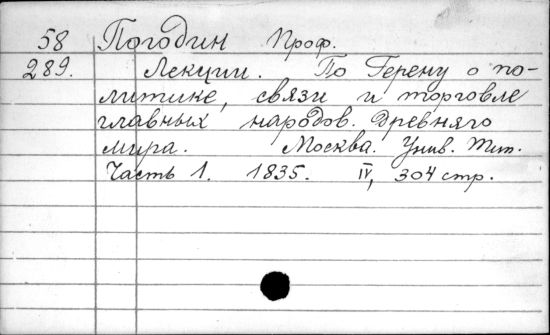 58 Погодин Проф.
289. Лекции. По Герену о по-
литике, связи и торговле
главных народов древняго
мира. Москва. Унив. Тип.
Часть 1. 1835. IV, 304 стр.